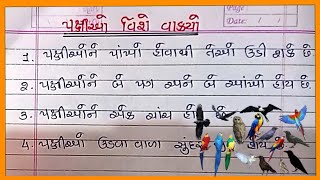 પક્ષીઓ વિશે વાક્યો
Date : / /
Page :
1. પક્ષીઓને પાંખો હોવાથી તેઓ ઉડી શકે છે.
2. પક્ષીઓને બે પગ અને બે આંખો હોય છે.
3. પક્ષીઓને એક ચાંચ
4. પક્ષીઓ ઉડવા વાળા